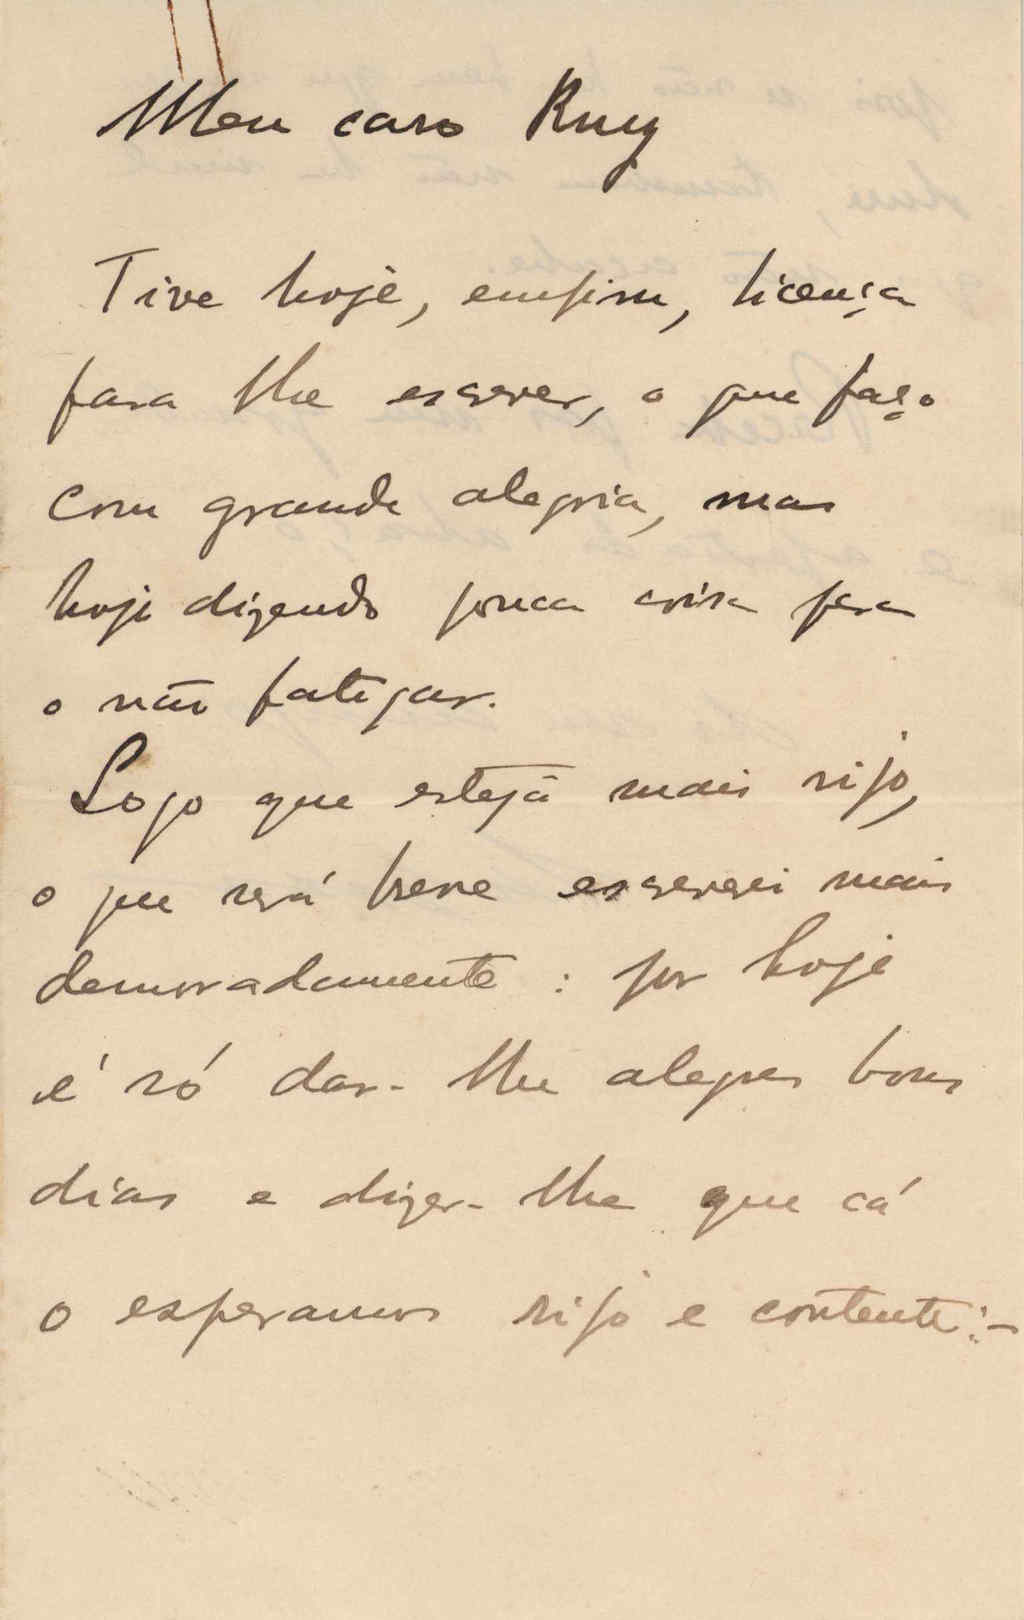 Meu caro Ruy
Tive hoje, emfim, licença
para lhe escrever, o que faço
com grande alegria, mas
hoje dizendo pouca coisa para
o não fatigar.
Logo que esteja mais rijo,
o que será breve escreverei mais
demoradamente : por hoje
é só dar-lhe alegres bons
dias e dizer-lhe que cá
o esperamos rijo e contente:-